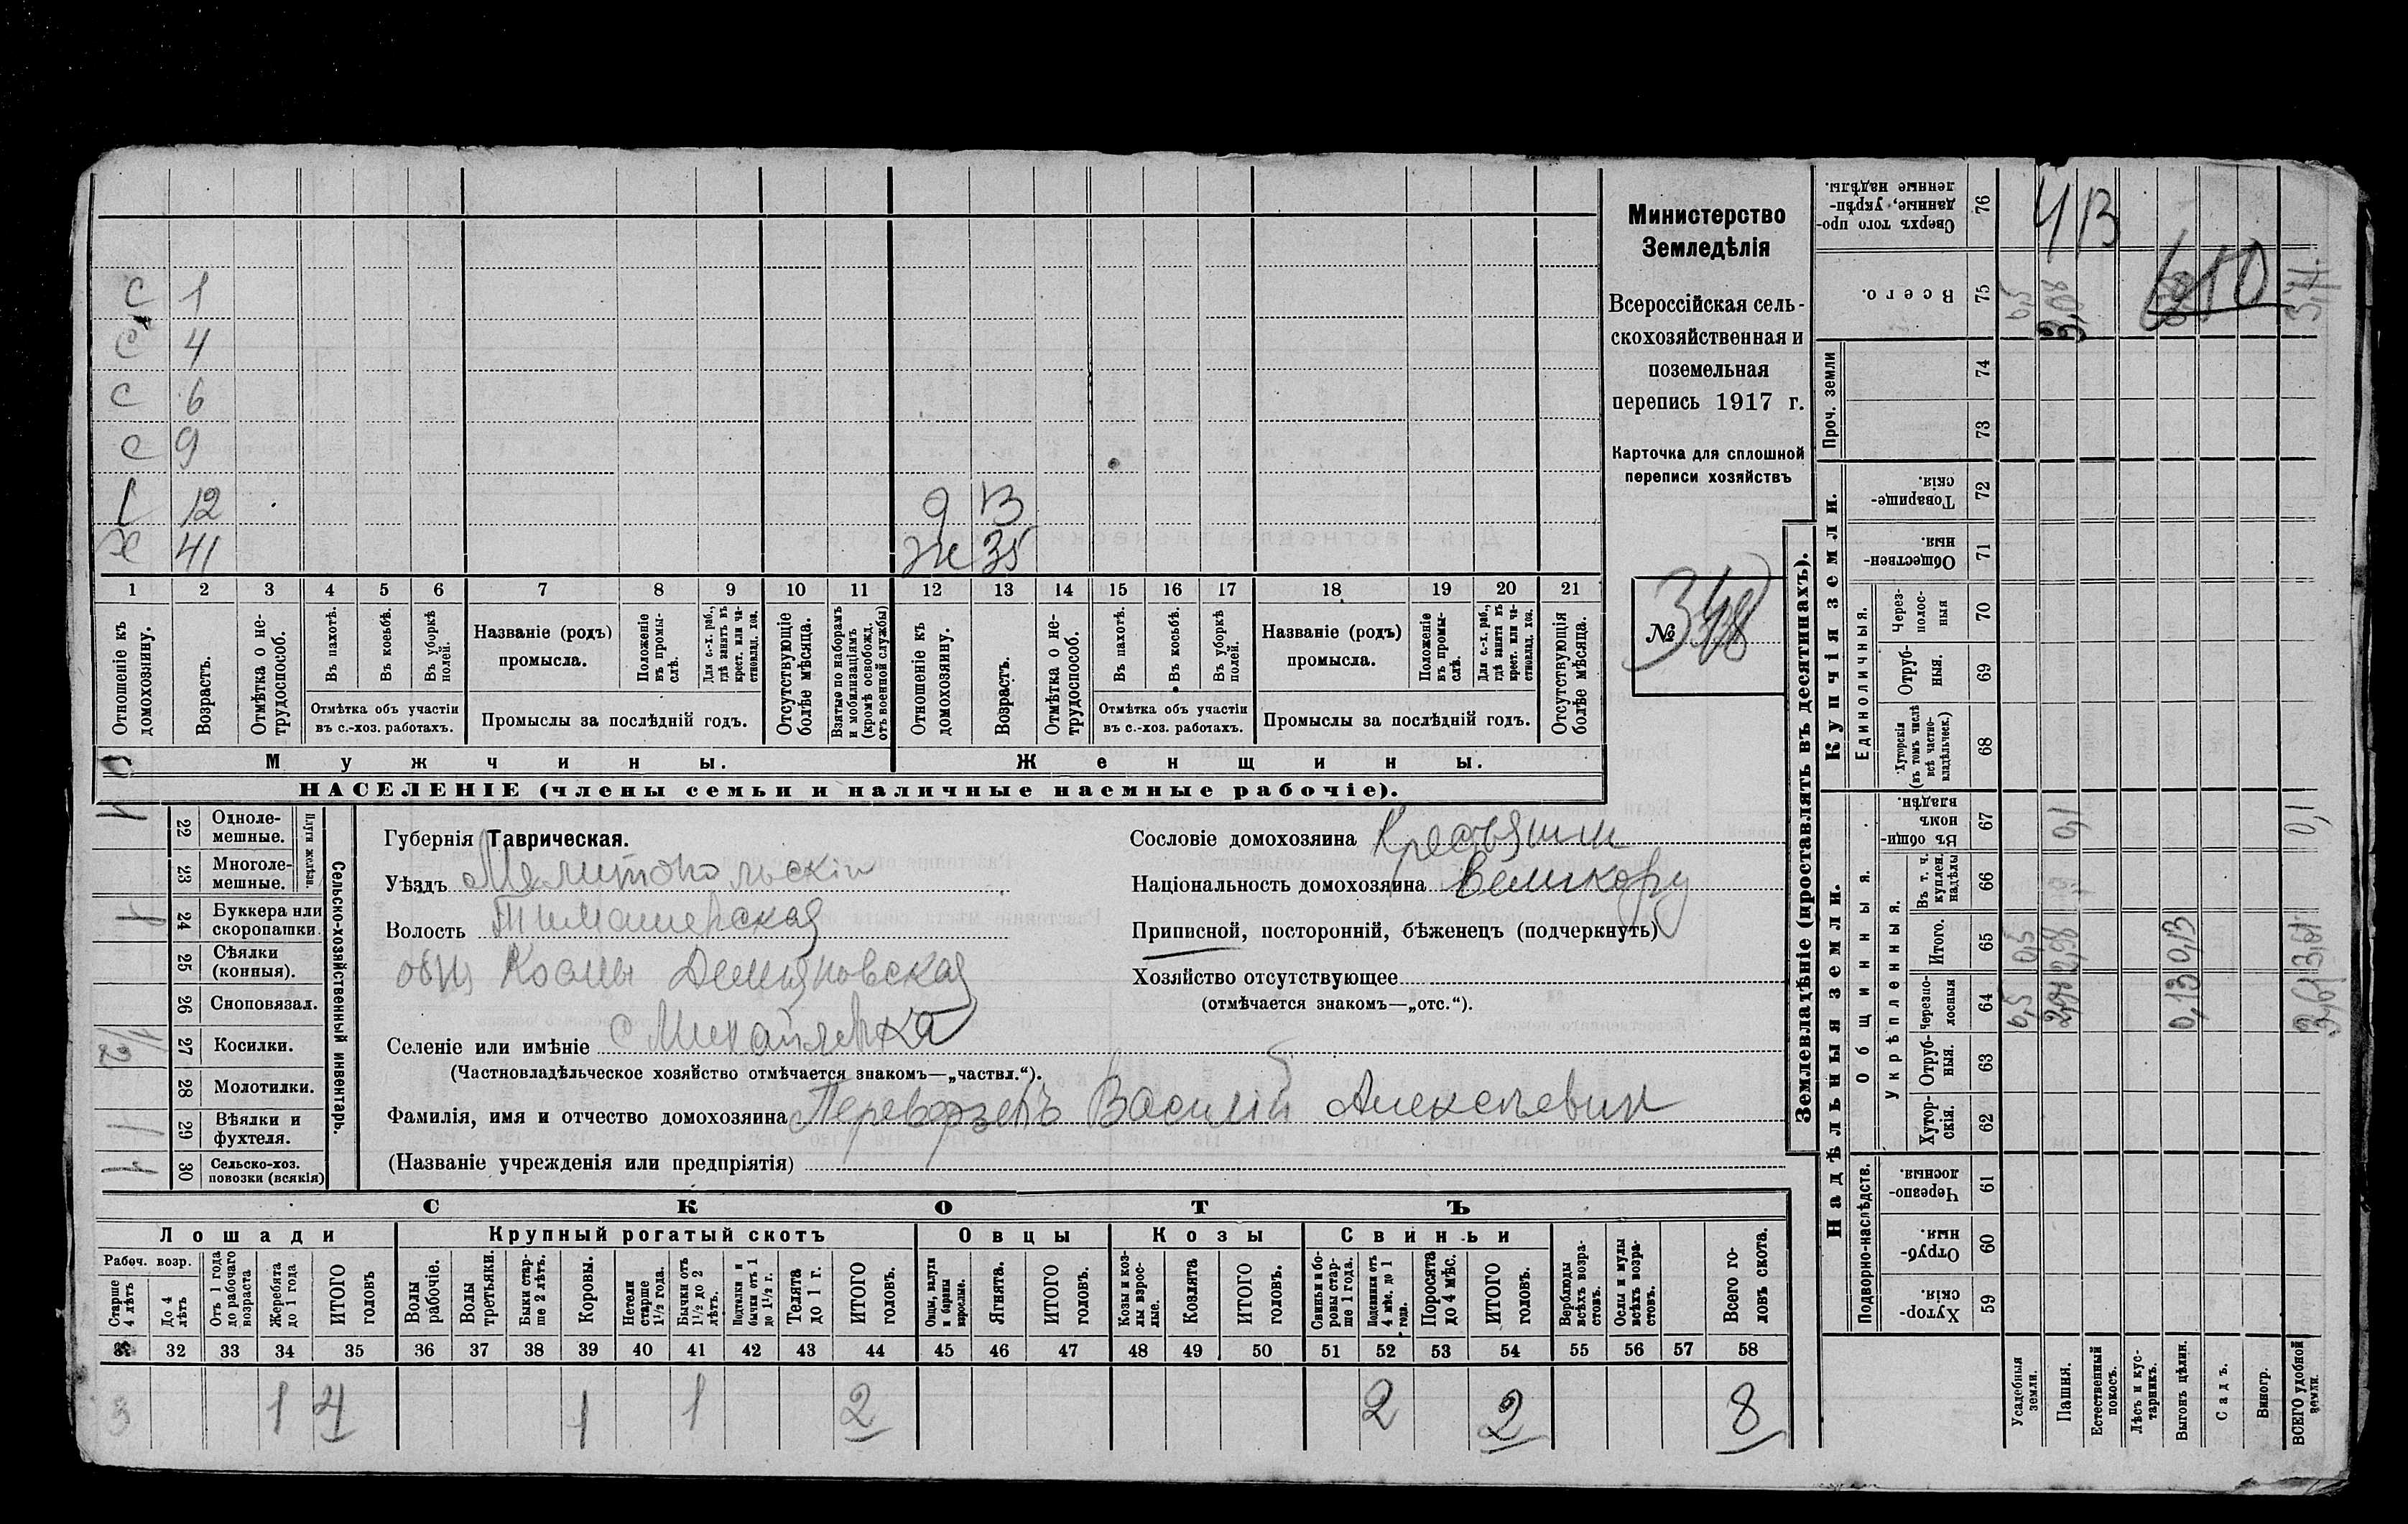 С 1
С 4
С 6
С 9
С 12 д 13
Х 41 ж 35
1 2 3 4 5 6 7 8 9 10 11 12 13 14 15 16 17 18 19 20 21
Отношеніе къ домохозяину.
Возрастъ.
Отмѣтка о не-трудоспособ.
Въ пахотѣ.
Въ косьбѣ.
Въ уборкѣ полей.
Отмѣтка объ участіи
въ с.-хоз. работахъ.
Названіе (родъ)
промысла.
Положеніе въ промы-слѣ.
Для с.-х. раб., гдѣ занятъ въ крест. или ча-стновлад. хоз.
Промыслы за послѣдній годъ.
Отсутствующіе болѣе мѣсяца.
Взятые по наборамъ и мобилизаціямъ (кромѣ освобожд. отъ военной службы)
Отношеніе къ домохозяину.
Возрастъ.
Отмѣтка о не-трудоспособ.
Въ пахотѣ.
Въ косьбѣ.
Въ уборкѣ полей.
Отмѣтка объ участіи
въ с.-хоз. работахъ.
Названіе (родъ)
промысла.
Положеніе въ промы-слѣ.
Для с.-х. раб., гдѣ занята въ крест. или ча-стновлад. хоз.
Промыслы за послѣдній годъ.
Отсутствующія болѣе мѣсяца.
Мужчины. Женщины.
НАСЕЛЕНІЕ (члены семьи и наличные наемные рабочіе).
Министерство
Земледѣлія
Всероссійская сель-
скохозяйственная и
поземельная
перепись 1917 г.
Карточка для сплошной
переписи хозяйствъ
№ 348
22 Одноле-мешные.
23 Многоле-мешные.
Плуги желѣзн.
24 Буккера или скоропашки.
25 Сѣялки (конныя).
26 Сноповязал.
27 Косилки.
28 Молотилки.
29 Вѣялки и фухтеля.
30 Сельско-хоз. повозки (всякія)
Сельско-хозяйственный инвентарь.
Губернія Таврическая.
Уѣздъ Мелитопольскій
Волость Тимашевская
общ Козмы Демьяновская
Селеніе или имѣніе с Михайловка
(Частновладѣльческое хозяйство отмѣчается знакомъ—„частвл.“).
Фамилія, имя и отчество домохозяина Переверзевъ Василій Алексѣевич
(Названіе учрежденія или предпріятія)
Сословіе домохозяина Крестьянин
Національность домохозяина Великору
Приписной, посторонній, бѣженецъ (подчеркнуть)
Хозяйство отсутствующее
(отмѣчается знакомъ—„отс.“).
СКОТЪ
Лошади Крупный рогатый скотъ Овцы Козы Свиньи
Рабоч. возр.
Старше 4 лѣтъ
До 4 лѣтъ
Отъ 1 года до рабочаго возраста
Жеребята до 1 года
ИТОГО головъ
Волы рабочіе.
Волы третьяки.
Быки стар-ше 2 лѣтъ.
Коровы.
Нетели старше 1½ года.
Бычки отъ 1½ до 2 лѣтъ.
Подтелки и бычки отъ 1 до 1½ г.
Телята до 1 г.
ИТОГО головъ.
Овцы, валухи и бараны взрослые.
Ягнята.
ИТОГО головъ.
Козы и коз-лы взрос-лые.
Козлята
ИТОГО головъ.
Свиньи и бо-ровы стар-ше 1 года.
Подсвинки отъ 4 мѣс. до 1 года.
Поросята до 4 мѣс.
ИТОГО головъ.
Верблюды всѣхъ возра-стовъ.
Ослы и мулы всѣхъ возра-стовъ.
Всего го-ловъ скота.
31 32 33 34 35 36 37 38 39 40 41 42 43 44 45 46 47 48 49 50 51 52 53 54 55 56 57 58
3 1 4 1 1 2 2 2 8
Землевладѣніе (проставлять въ десятинахъ).
Надѣльныя земли. Купчія земли. Проч. земли
Подворно-наслѣдств. Общинныя. Единоличныя.
Укрѣпленныя.
76 Сверхъ того про-данные, укрѣп-ленные надѣлы. 4 13
75 Всего. 0,5 3,08
74
73
72 Товарище-скія.
71 Обществен-ныя.
70 Через-полос-ныя
69 Отруб-ныя.
68 Хуторскія (въ томъ числѣ всѣ частно-владѣльческ.)
67 Въ общи-номъ владѣн. 0,1 0,1
66 Въ т. ч. куплен. надѣлы
65 Итого. 0,5 2,98 0,13 3,61
64 Черезпо-лосныя 0,5 2,98 0,13 3,61
63 Отруб-ныя.
62 Хутор-скія.
61 Черезпо-лосныя.
60 Отруб-ныя.
59 Хутор-скія.
Усадебныя земли.
Пашня.
Естественный покосъ.
Лѣсъ и кус-тарникъ.
Выгонъ цѣлин.
Садъ.
Виногр.
ВСЕГО удобной земли.